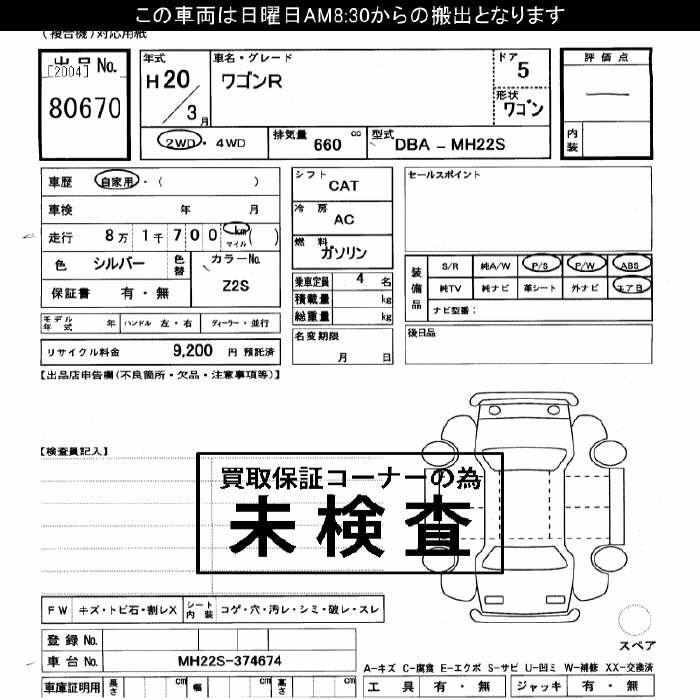 この車両は日曜日AM8:30からの搬出となります
(複合機)対応用紙
出品No.
[2004]
80670
年式
H20/3月
車名・グレード
ワゴンR
ドア
5
形状
ワゴン
評価点
―
内装
2WD・4WD
排気量 660 cc
型式 DBA - MH22S
車歴 自家用・( )
車検 年 月
走行 8万1千700 km マイル ( )
色 シルバー 色替
カラーNo.
Z2S
保証書 有・無
シフト
CAT
冷房
AC
燃料
ガソリン
乗車定員 4 名
積載量 kg
総重量 kg
セールスポイント
装備品
S/R 純A/W P/S P/W ABS
純TV 純ナビ 革シート 外ナビ エアB
ナビ型番:
モデル年式 年 ハンドル 左・右 ディーラー・並行
リサイクル料金 9,200 円 預託済
名変期限
月 日
後日品
【出品店申告欄(不良箇所・欠品・注意事項等)】
【検査員記入】
買取保証コーナーの為
未検査
FW キズ・トビ石・割レX シート内装 コゲ・穴・汚レ・シミ・破レ・スレ
登録No.
車台No. MH22S-374674
車庫証明用 長さ cm 幅 cm 高さ cm
スペア
A-キズ C-腐食 E-エクボ S-サビ U-凹ミ W-補修 XX-交換済
工具 有・無 ジャッキ 有・無